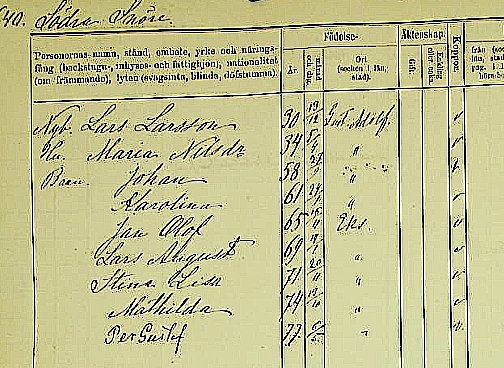 40. Södra Snöre.
Personernas namn, stånd, embete, yrke och närings-
fång (backstugu-, inhyses- och fattighjon), nationalitet
(om främmande), lyten (svagsinta, blinda, döfstumma).
Födelse-
År. månad och dag. Ort (socken i län, stad).
Äktenskap.
Gift. Enkling eller enka.
Koppor.
från (socken
Lars Larsson 30 Gust. Adolf. v
Hu. Maria Nilsdr 34 " v
Barn Johan 58 " v
Karolina 61 " v
Jan Olof 65 Eks. v
Lars August 69 " v
Stina Lisa 71 " v
Mathilda 74 " v
Per Gustef 77 " v